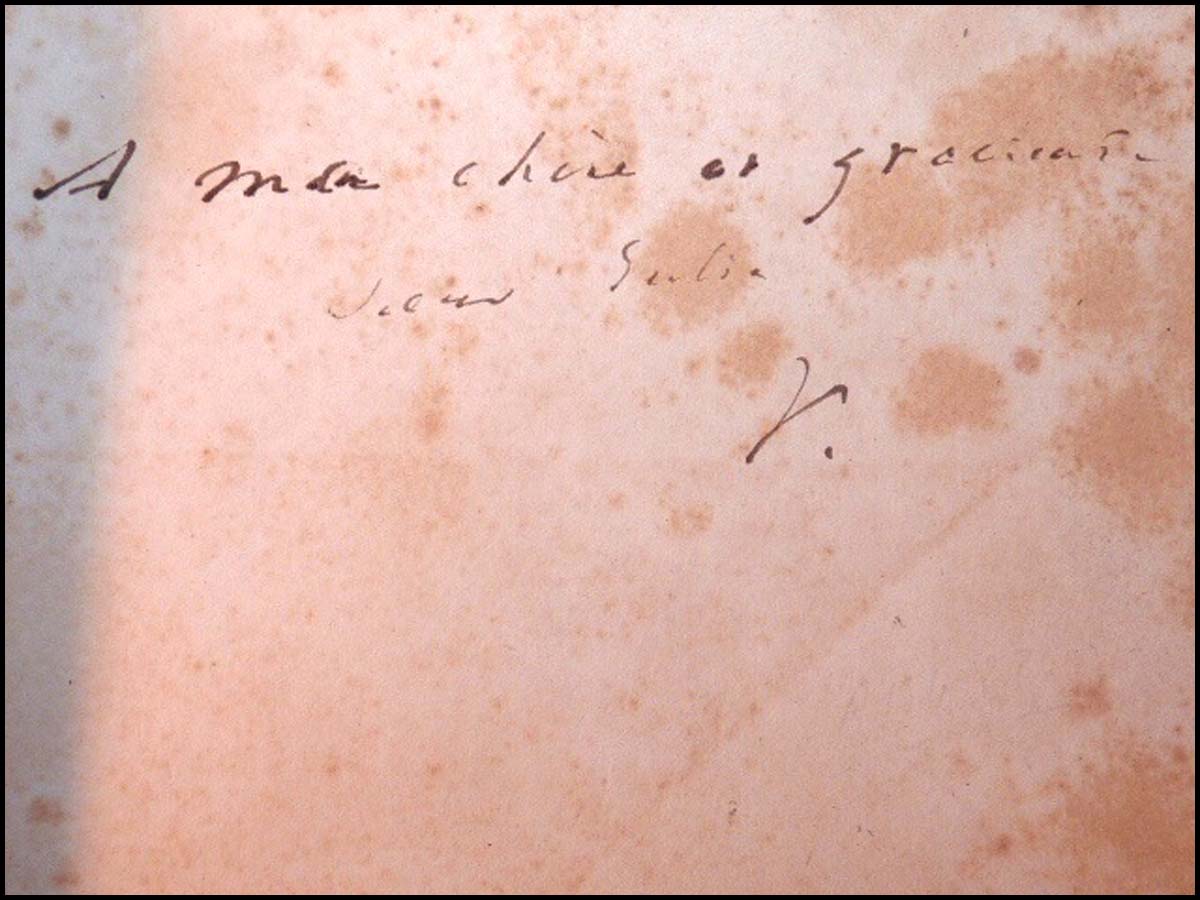 A ma chère et gracieuse
sœur Julie
V.